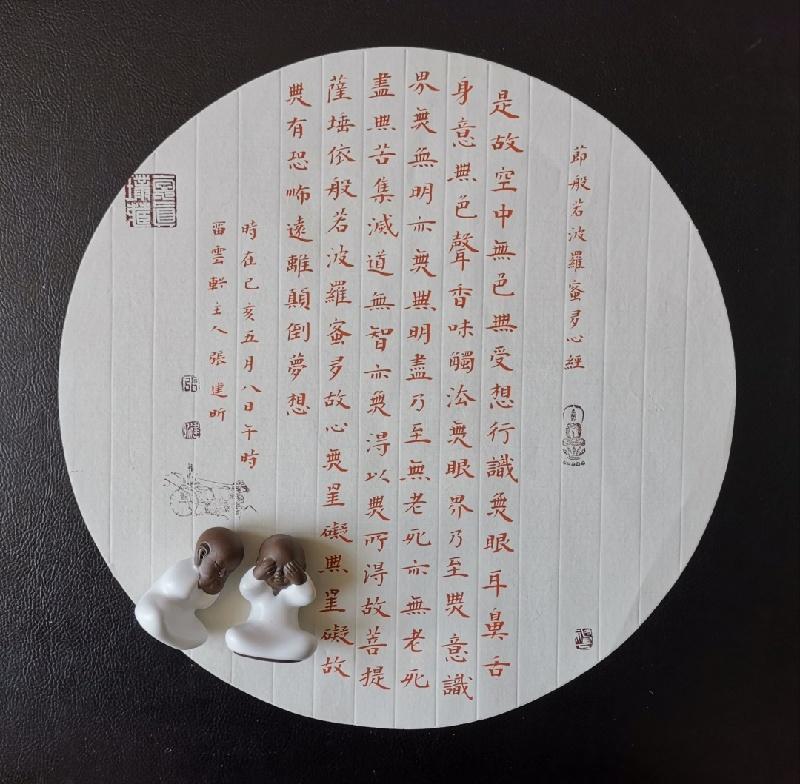 節般若波羅蜜多心經
是故空中無色無受想行識無眼耳鼻舌
身意無色聲香味觸法無眼界乃至無意識
界無無明亦無無明盡乃至無老死亦無老死
盡無苦集滅道無智亦無得以無所得故菩提
薩埵依般若波羅蜜多故心無罣礙無罣礙故
無有恐怖遠離顛倒夢想
時在己亥五月八日午時
留雲軒主人張建昕